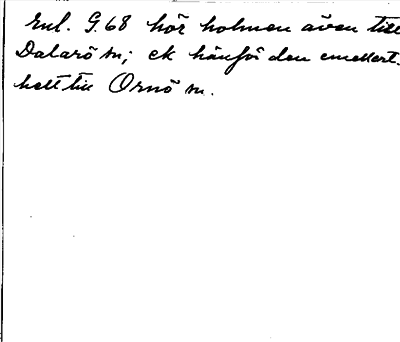 Enl. G.68 hör holmen även till
Dalarö sn; ek hänför den emellert.
helt till Ornö sn.